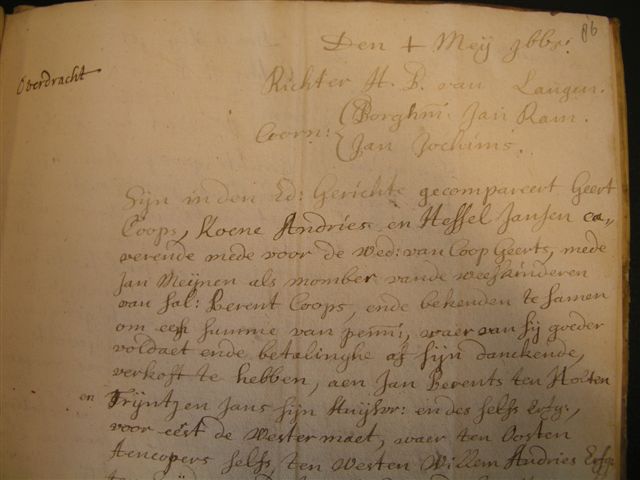 86
Den + Meij 1665:
Overdracht
Richter H. B. van Langen.
Borghm: Jan Ram.
Coorn:
Jan Jochims.
Sijn in den Ed: Gerichte gecompareert Geert
Coops, Koene Andries en Hessel Jansen ca„
verende mede voor de Wed: van Coop Geerts, mede
Jan Meijnen als momber vande weeskinderen
van sal: Berent Coops, ende bekenden te samen
om een summe van penni, waer van sij goeder
voldaet ende betalinghe af sijn danckende,
verkoft te hebben, aen Jan Berents ten Holten
en Trijntjen Jans sijn Huijsvr: en des selfs Erfg:,
voor eerst de Wester maet, waer ten Oosten
tencopers selfs, ten Westen Willem Andries Erfg